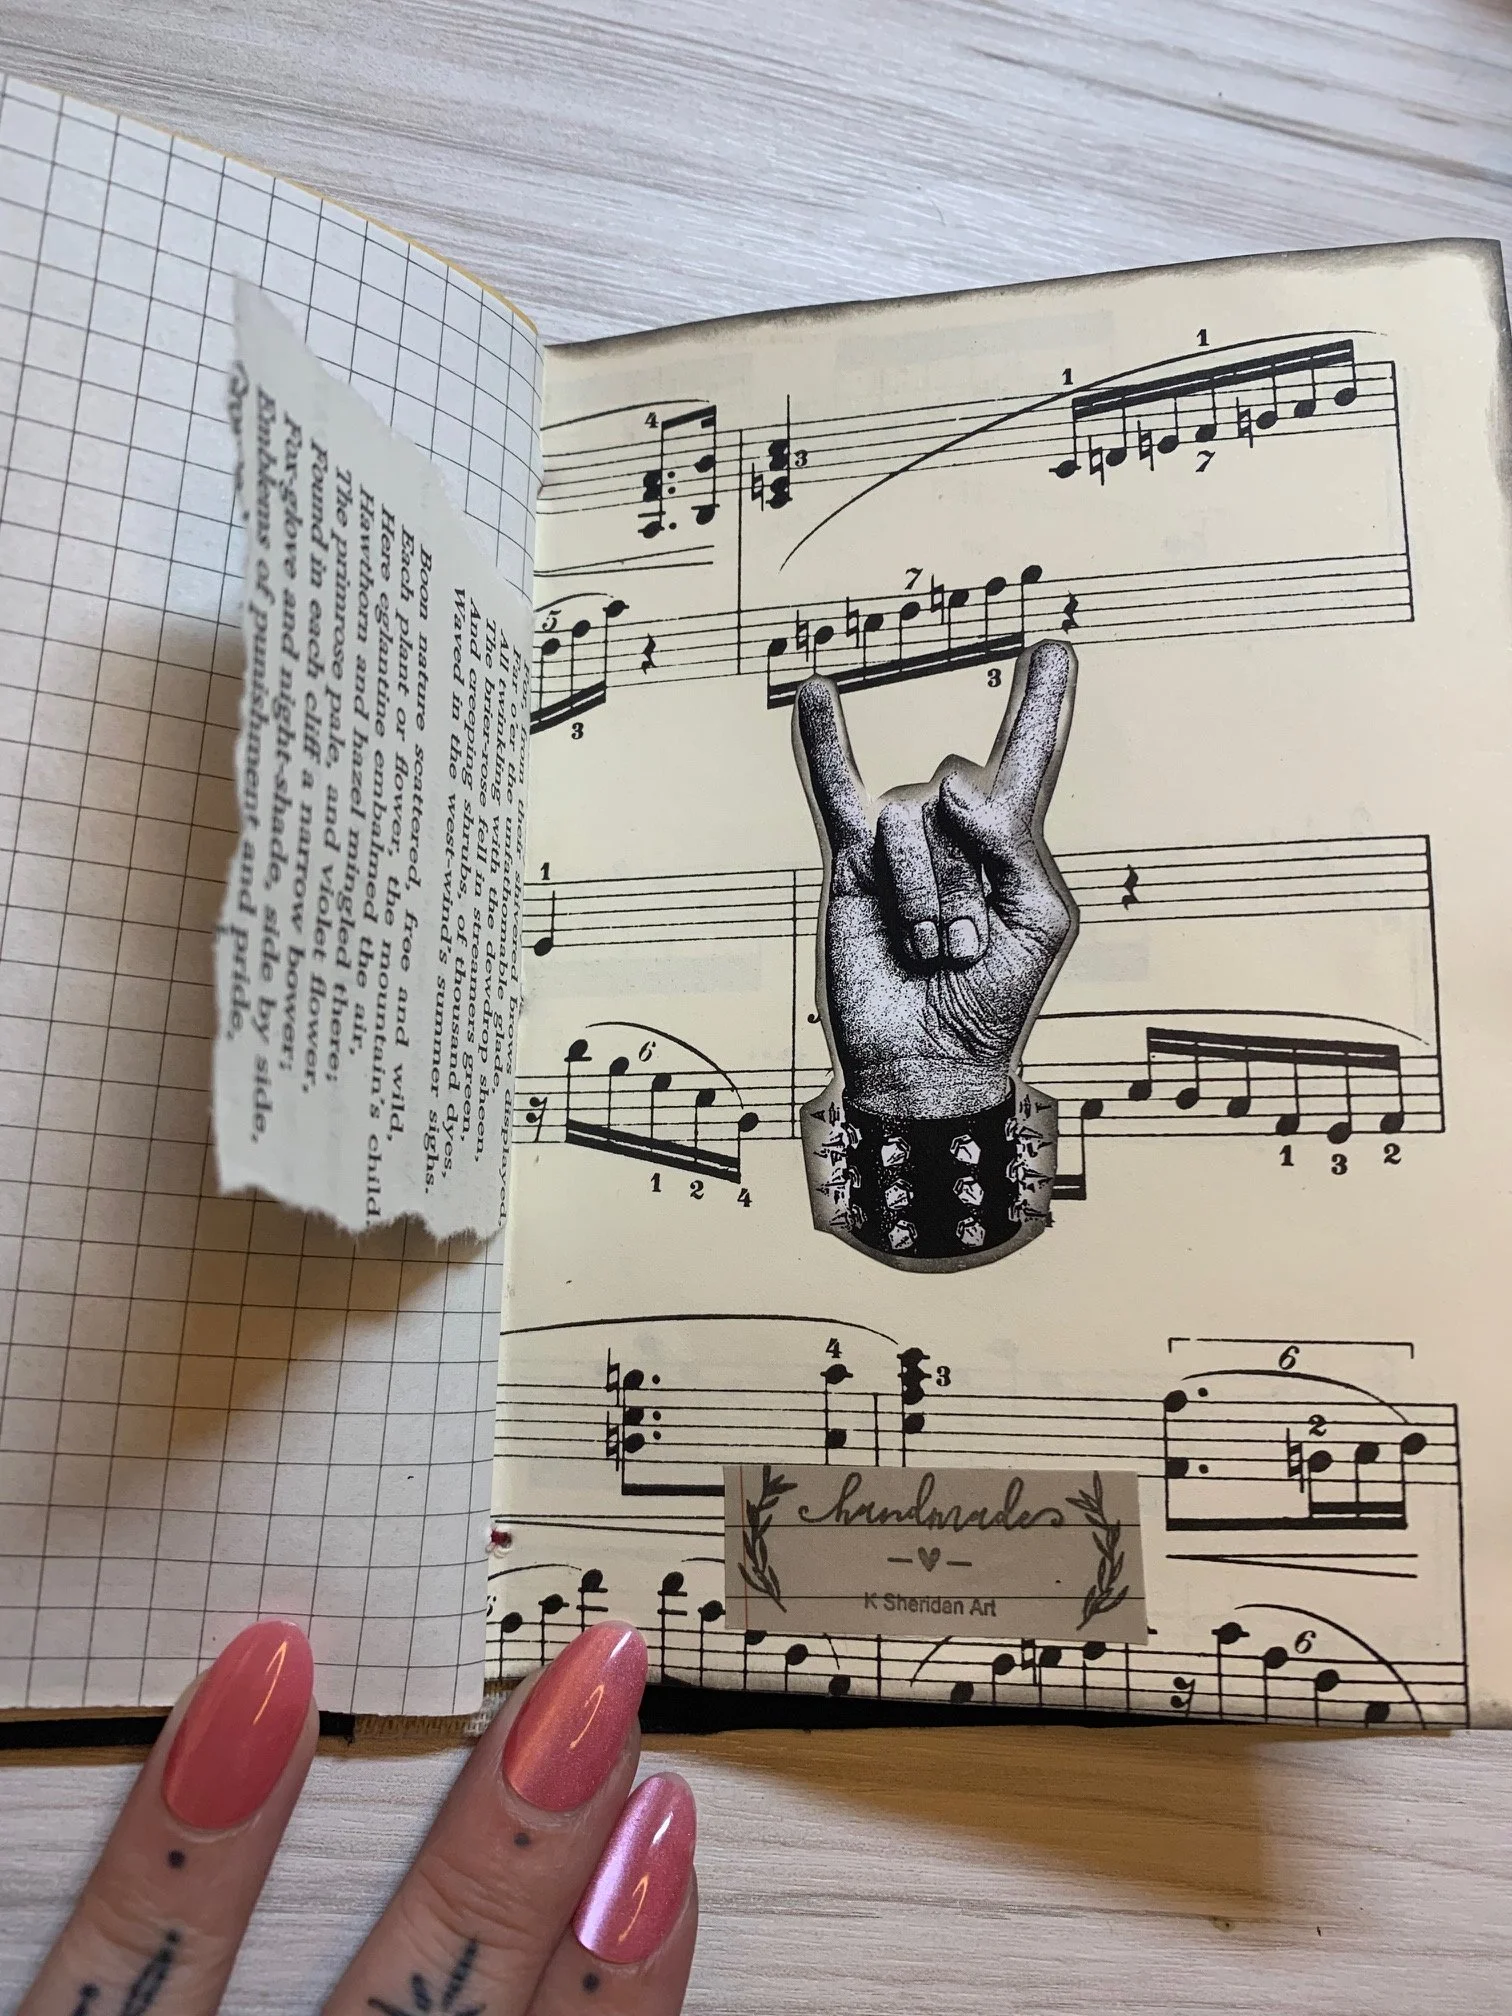 For, from their shivered brows displayed,
Far o'er the unfathomable glade,
All twinkling with the dewdrop sheen,
The brier-rose fell in streamers green,
And creeping shrubs, of thousand dyes,
Waved in the west-wind's summer sighs.
Boon nature scattered, free and wild,
Each plant or flower, the mountain's child.
Here eglantine embalmed the air,
Hawthorn and hazel mingled there;
The primrose pale, and violet flower,
Found in each cliff a narrow bower;
Fox-glove and night-shade, side by side,
Emblems of punishment and pride,
1
4 1
3 7
5 7
3 3
1
6
1 2 4 1 3 2
4 3 6
2
handmade
K Sheridan Art
6